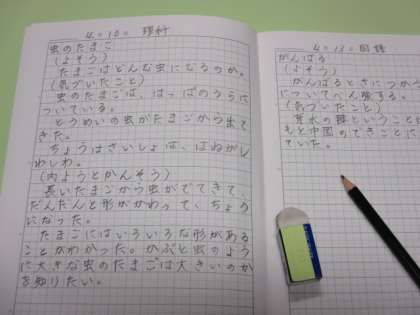 4=10= 理科
虫のたまご
（よそう）
たまごはどんな虫になるのか。
（気づいたこと）
虫のたまごは、はっぱのうらに
ついている。
とうめいの虫がたまごから出て
きた。
ちょうはさいしょは、はねがし
わしわ。
（内ようとかんそう）
長いたまごから虫がでてきて、
だんだんと形がかわって、ちょう
になった。
たまごにはいろいろな形がある
ことがわかった。かぶと虫のよう
に大きな虫のたまごは大きいのか
を知りたい。
4=13=国語
がんばる
（よそう）
がんばるときにつかう
についてべん強する。
（気づいたこと）
背水の陣ということ
もと中国のできごとに
ていた。